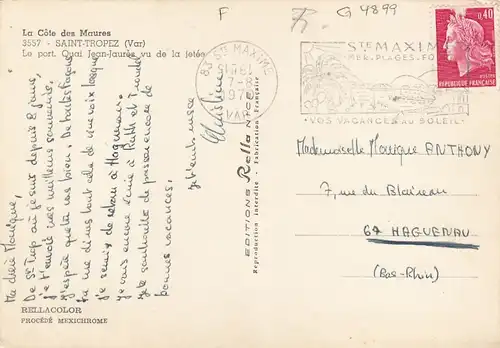 La Côte des Maures
3557 - SAINT-TROPEZ (Var)
Le port. Quai Jean-Jaurès vu de la jetée
F
G 4899
83 STE MAXIME
VAR
STE MAXIME
MER. PLAGES.
VOS VACANCES AU SOLEIL
0,40
REPUBLIQUE FRANCAISE
Ma chère Monique,
De St Trop où je suis depuis 8 jours,
je t'envoie mes meilleurs souvenirs.
J'espère que tu vas bien. De toutes façons
tu me diras tout cela de vive voix lorsque
je serai de retour à Haguenau.
Je vais encore écrire à Ruth et
Je te souhaite de passer encore de
bonnes vacances.
Je t'embrasse
Christine
EDITIONS Rella NICE
Reproduction interdite - Fabrication Française
Mademoiselle Monique ANTHONY
7, rue du Blaireau
67 HAGUENAU
(Bas-Rhin)
RELLACOLOR
PROCÉDÉ MEXICHROME